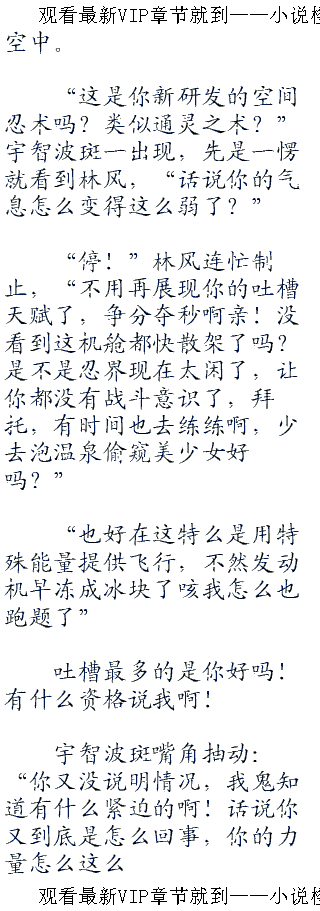 观看最新VIP章节就到——小说
空中。
“这是你新研发的空间
忍术吗？类似通灵之术？”
宇智波斑一出现，先是一愣
就看到林风，“话说你的气
息怎么变得这么弱了？”
“停！”林风连忙制
止，“不用再展现你的吐槽
天赋了，争分夺秒啊亲！没
看到这机舱都快散架了吗？
是不是忍界现在太闲了，让
你都没有战斗意识了，拜
托，有时间也去练练啊，少
去泡温泉偷窥美少女好
吗？”
“也好在这特么是用特
殊能量提供飞行，不然发动
机早冻成冰块了咳我怎么也
跑题了”
吐槽最多的是你好吗！
有什么资格说我啊！
宇智波斑嘴角抽动：
“你又没说明情况，我鬼知
道有什么紧迫的啊！话说你
又到底是怎么回事，你的力
量怎么这么
观看最新VIP章节就到——小说